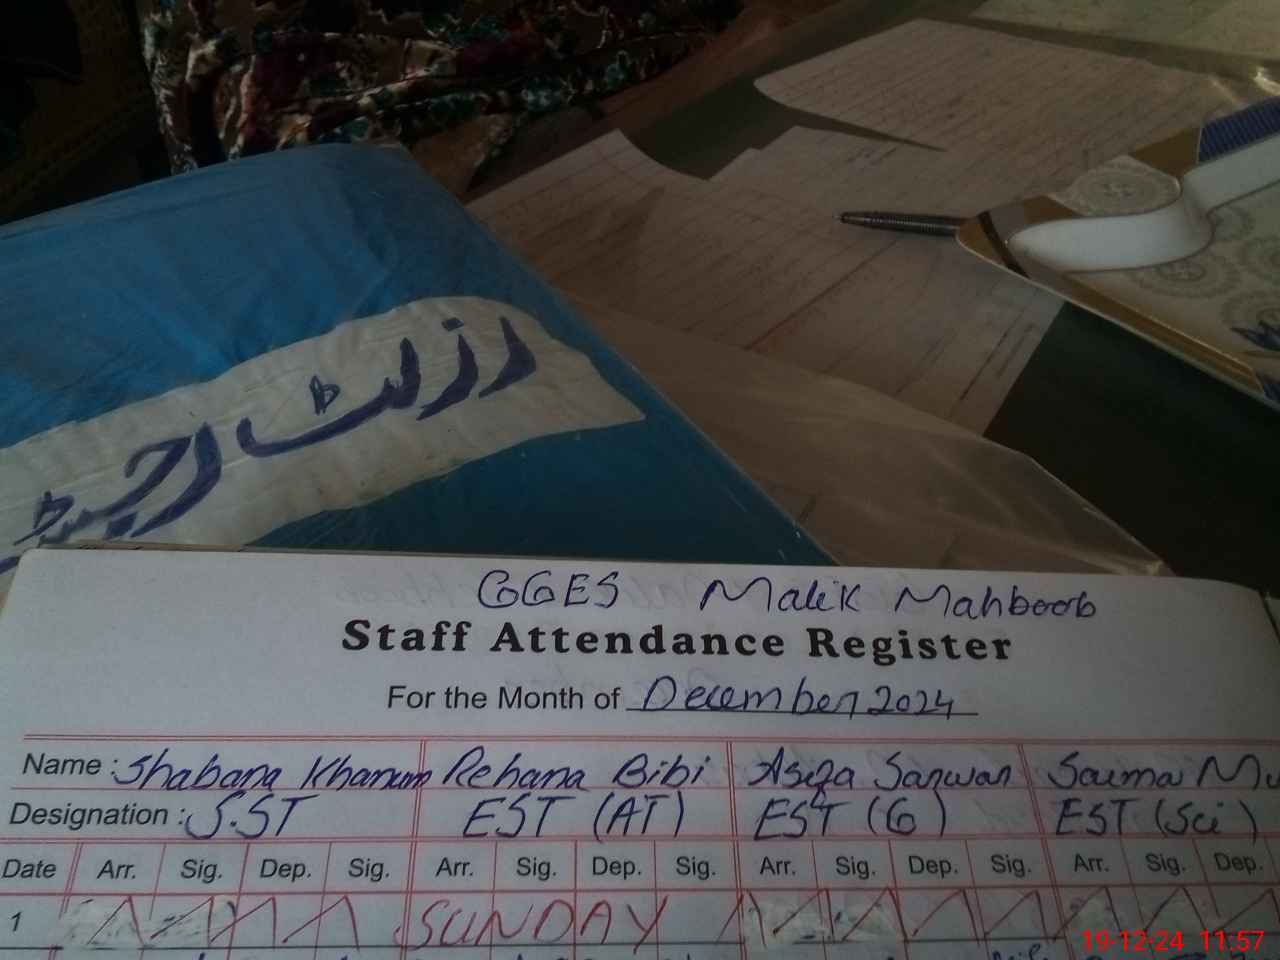 رزلٹ رجسٹر
GGES Malik Mahboob
Staff Attendance Register
For the Month of December 2024
Name : Shabana Khanum Rehana Bibi Asifa Sarwar Saima
Designation : S.ST EST (AT) EST (G) EST (Sci)
Date Arr. Sig. Dep. Sig. Arr. Sig. Dep. Sig. Arr. Sig. Dep. Sig. Arr. Sig. Dep.
1 SUNDAY
19-12-24 11:57